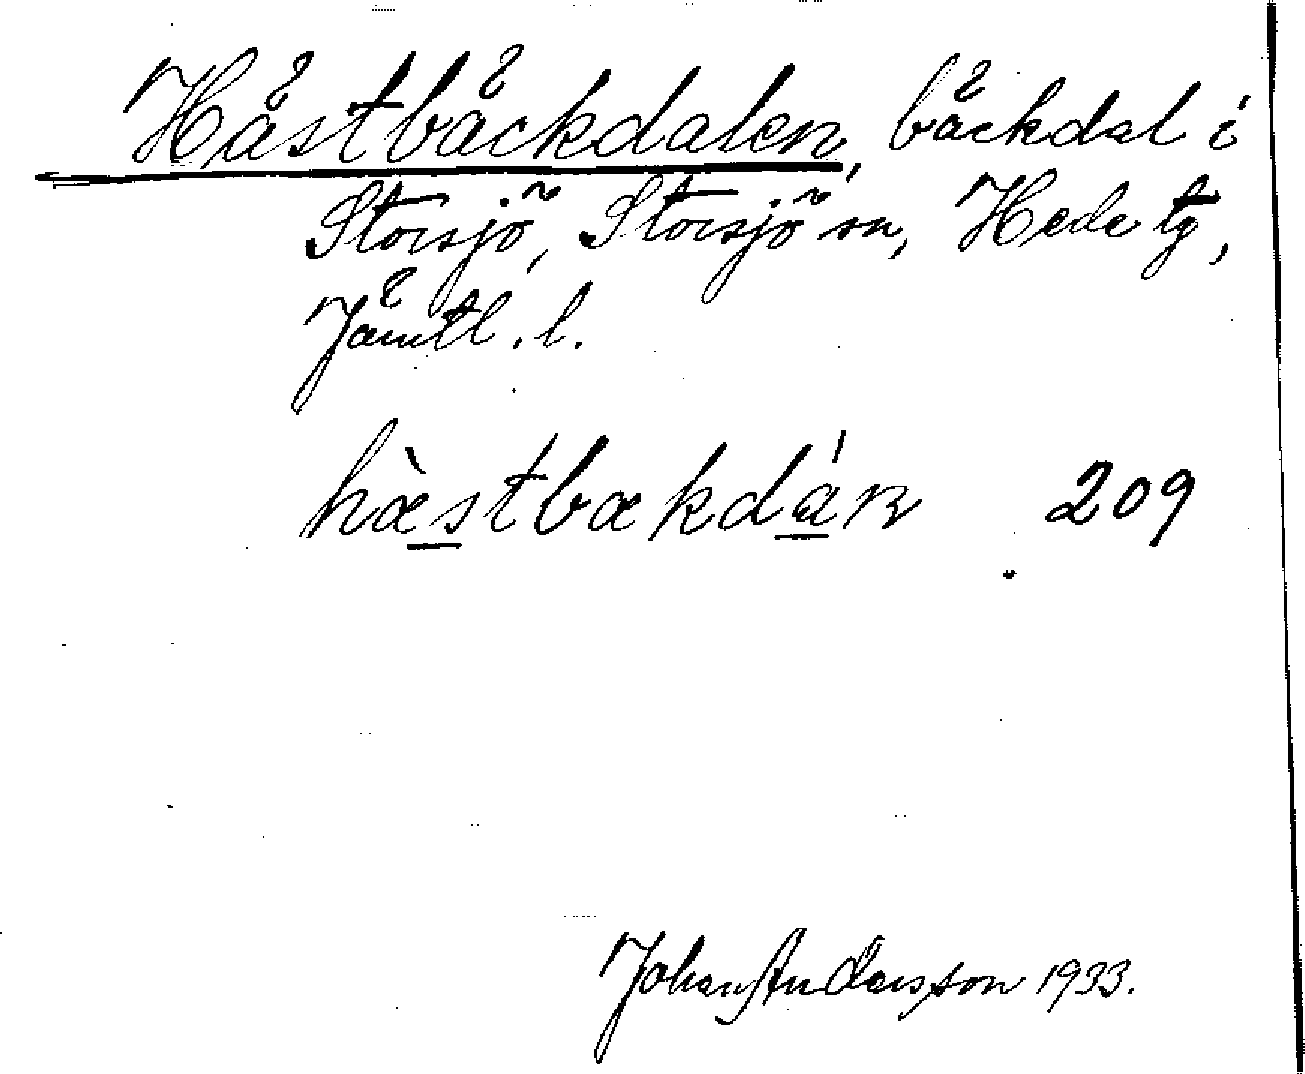 Hästbäckdalen, bäckdal i
Storsjö, Storsjö sn, Hede tg,
Jämtl. l.
hæ̀stbækdán 209
Johan Andersson 1933.